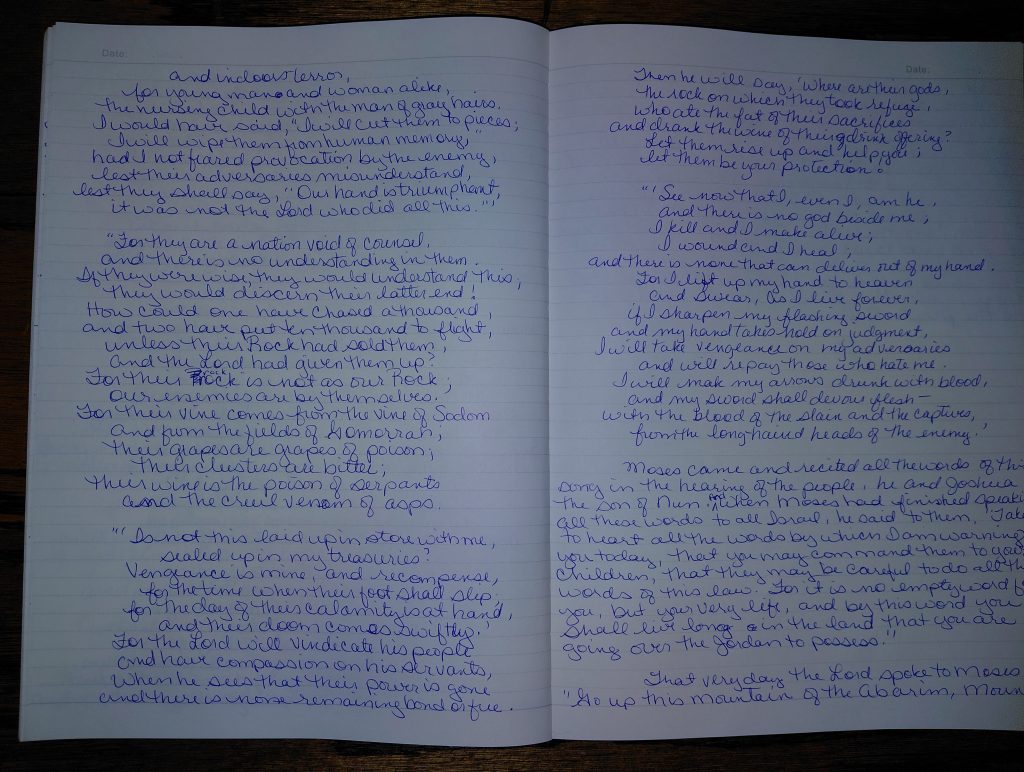 Date:
and indoors terror,
for young man and woman alike,
the nursing child with the man of gray hairs.
I would have said, "I will cut them to pieces;
I will wipe them from human memory,"
had I not feared provocation by the enemy,
lest their adversaries misunderstand,
lest they shall say, "Our hand is triumphant,
it was not the Lord who did all this."'
"For they are a nation void of counsel,
and there is no understanding in them.
If they were wise, they would understand this;
They would discern their latter end!
How could one have chased a thousand,
and two have put ten thousand to flight,
unless their Rock had sold them,
and the Lord had given them up?
For their rock is not as our Rock;
our enemies are by themselves.
For their vine comes from the vine of Sodom
and from the fields of Gomorrah;
their grapes are grapes of poison;
their clusters are bitter;
their wine is the poison of serpants
and the cruel venom of asps.
"'Is not this laid up in store with me,
sealed up in my treasuries?
Vengeance is mine, and recompense,
for the time when their foot shall slip;
for the day of their calamity is at hand,
and their doom comes swiftly.'
For the Lord will vindicate his people
and have compassion on his servants,
when he sees that their power is gone
and there is none remaining bond or free.
Date:
Then he will say, 'Where are their gods,
the rock on which they took refuge,
who ate the fat of their sacrifices
and drank the wine of their drink offering?
Let them rise up and help you;
let them be your protection!
"'See now that I, even I, am he,
and there is no god beside me;
I kill and I make alive;
I wound and I heal;
and there is none that can deliver out of my hand.
For I lift up my hand to heaven
and swear, As I live forever,
if I sharpen my flashing sword
and my hand takes hold on judgment,
I will take vengeance on my adversaries
and will repay those who hate me.
I will make my arrows drunk with blood,
and my sword shall devour flesh—
with the blood of the slain and the captives,
from the longhaired heads of the enemy.'
Moses came and recited all the words of this
song in the hearing of the people, he and Joshua
the son of Nun. And when Moses had finished speaki
all these words to all Israel, he said to them, "Take
to heart all the words by which I am warning
you today, that you may command them to your
children, that they may be careful to do all th
words of this law. For it is no empty word f
you, but your very life, and by this word you
shall live long in the land that you are
going over the Jordan to possess."
That very day the Lord spoke to Moses
"Go up this mountain of the Abarim, Moun